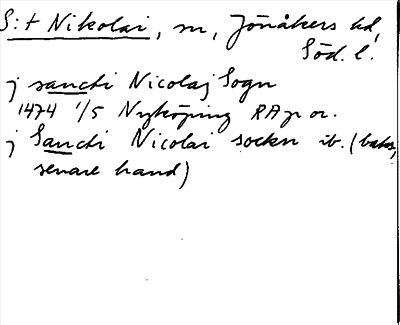 S:t Nikolai, sn, Jönåkers hd,
Söd. l.
j sancti Nicolaj Sogn
1474 1/5 Nyköping RAp or.
j Sancti Nicolai sockn ib. (baks,
senare hand)